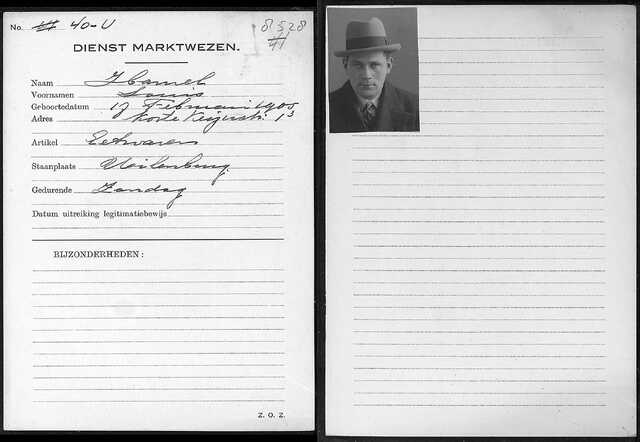 No. 40-U
8528
41
DIENST MARKTWEZEN.
Naam Hamel
Voornamen Louis
Geboortedatum 17 Februari 1905
Adres Korte Keizerstr. 13
Artikel Eetwaren
Staanplaats Uilenburg
Gedurende Zondag
Datum uitreiking legitimatiebewijs
BIJZONDERHEDEN:
Z. O. Z.